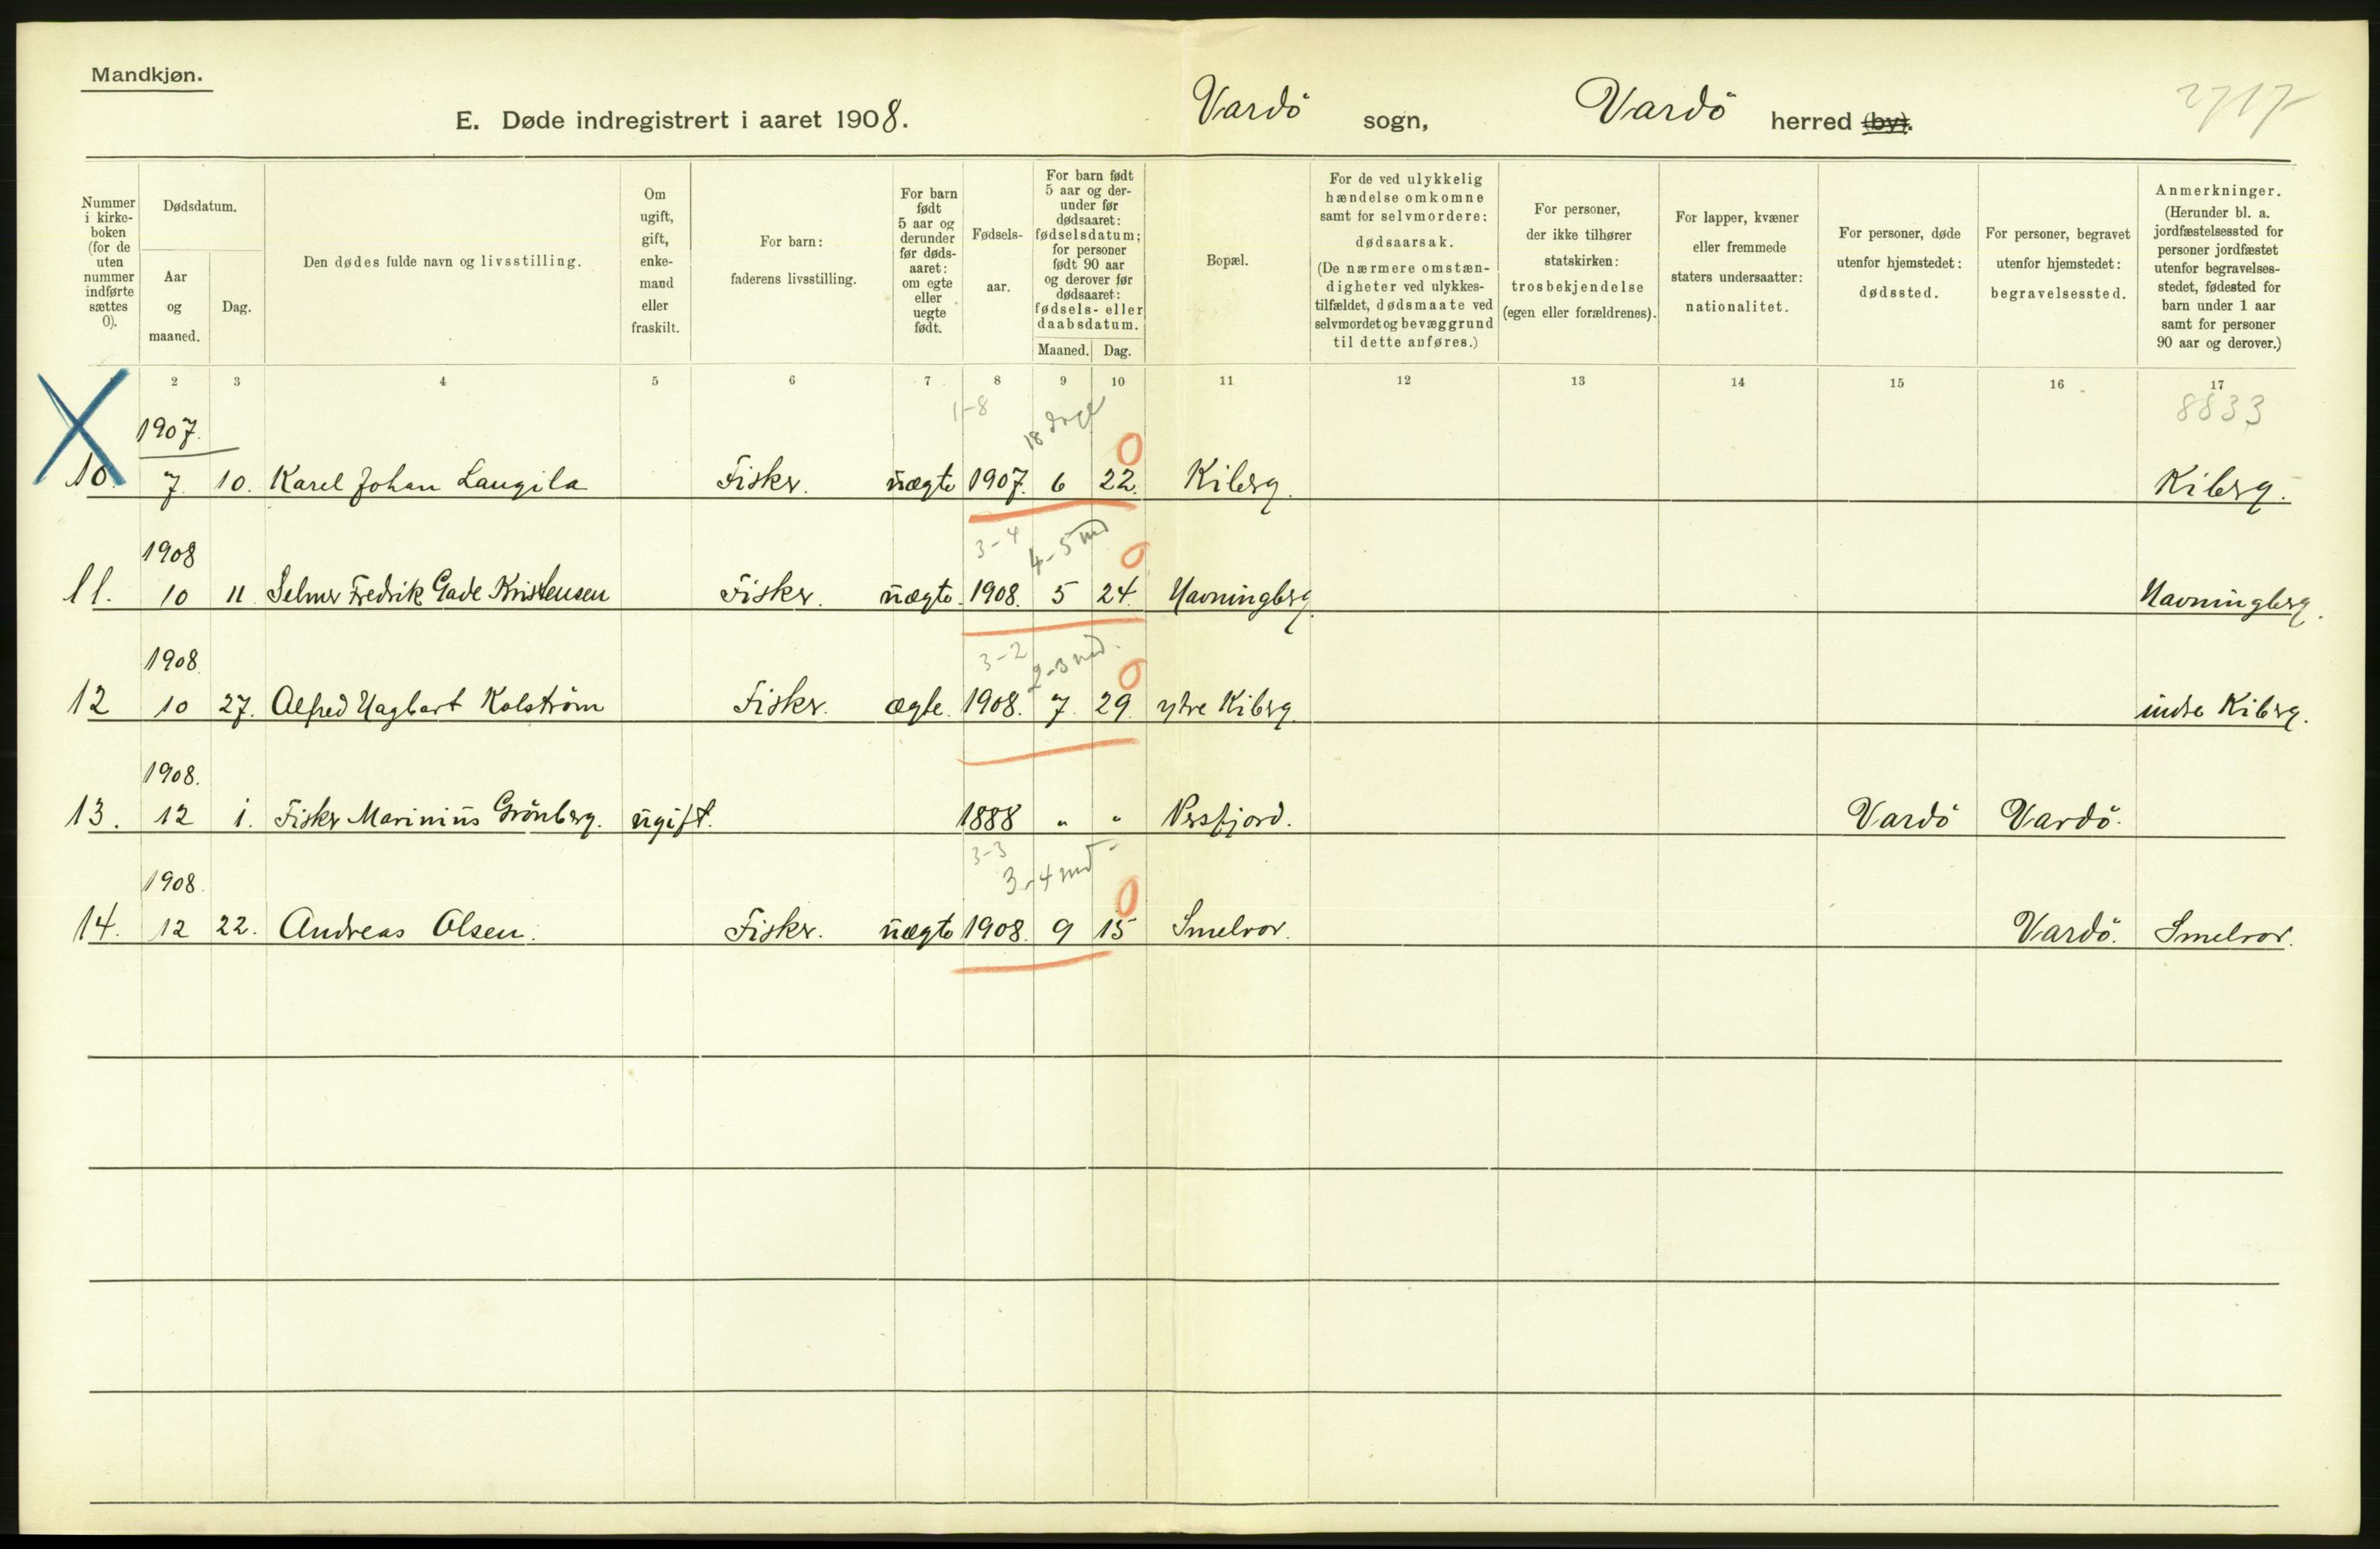 Mandkjøn.
E. Døde indregistrert i aaret 1908.
Vardö sogn, Vardö herred (by).
Nummer i kirkeboken (for de uten nummer indførte sættes 0).
Dødsdatum.
Aar og maaned.
Dag.
Den dødes fulde navn og livsstilling.
Om ugift, gift, enkemand eller fraskilt.
For barn: faderens livsstilling.
For barn født 5 aar og derunder før dødsaaret: om egte eller uegte født.
Fødselsaar.
For barn født 5 aar og derunder før dødsaaret: fødselsdatum; for personer født 90 aar og derover før dødsaaret: fødsels- eller daabsdatum.
Maaned. Dag.
Bopæl.
For de ved ulykkelig hændelse omkomne samt for selvmordere: dødsaarsak.
(De nærmere omstændigheter ved ulykkestilfældet, dødsmaate ved selvmordet og bevæggrund til dette anføres.)
For personer, der ikke tilhører statskirken: trosbekjendelse (egen eller forældrenes).
For lapper, kvæner eller fremmede staters undersaatter: nationalitet.
For personer, døde utenfor hjemstedet: dødssted.
For personer, begravet utenfor hjemstedet: begravelsessted.
Anmerkninger.
(Herunder bl. a. jordfæstelsessted for personer jordfæstet utenfor begravelsesstedet, fødested for barn under 1 aar samt for personer 90 aar og derover.)
2 3 4 5 6 7 8 9 10 11 12 13 14 15 16 17
1-8 8833
1907. 18 dage 0
10. 7. 10. Karel Johan Laugila Fisker. uægte 1907. 6 22. Kiberg. Kiberg.
3-4 4-5 md 0
1908
11. 10 11 Selmer Fredrik Gade Kristensen Fisker. uægte. 1908. 5 24. Havningberg. Havningberg.
3-2 2-3 md. 0
1908.
12 10 27. Alfred Hagbart Kolström Fisker. ægte. 1908. 7. 29. ytre Kiberg. indre Kiberg.
1908.
13. 12 1. Fisker Marinius Grönberg. ugift. 1888 " " Persfjord. Vardö Vardö.
3-3 3-4 md 0
1908.
14. 12 22. Andreas Olsen. Fisker. uægte 1908. 9 15 Smelror. Vardö. Smelror.